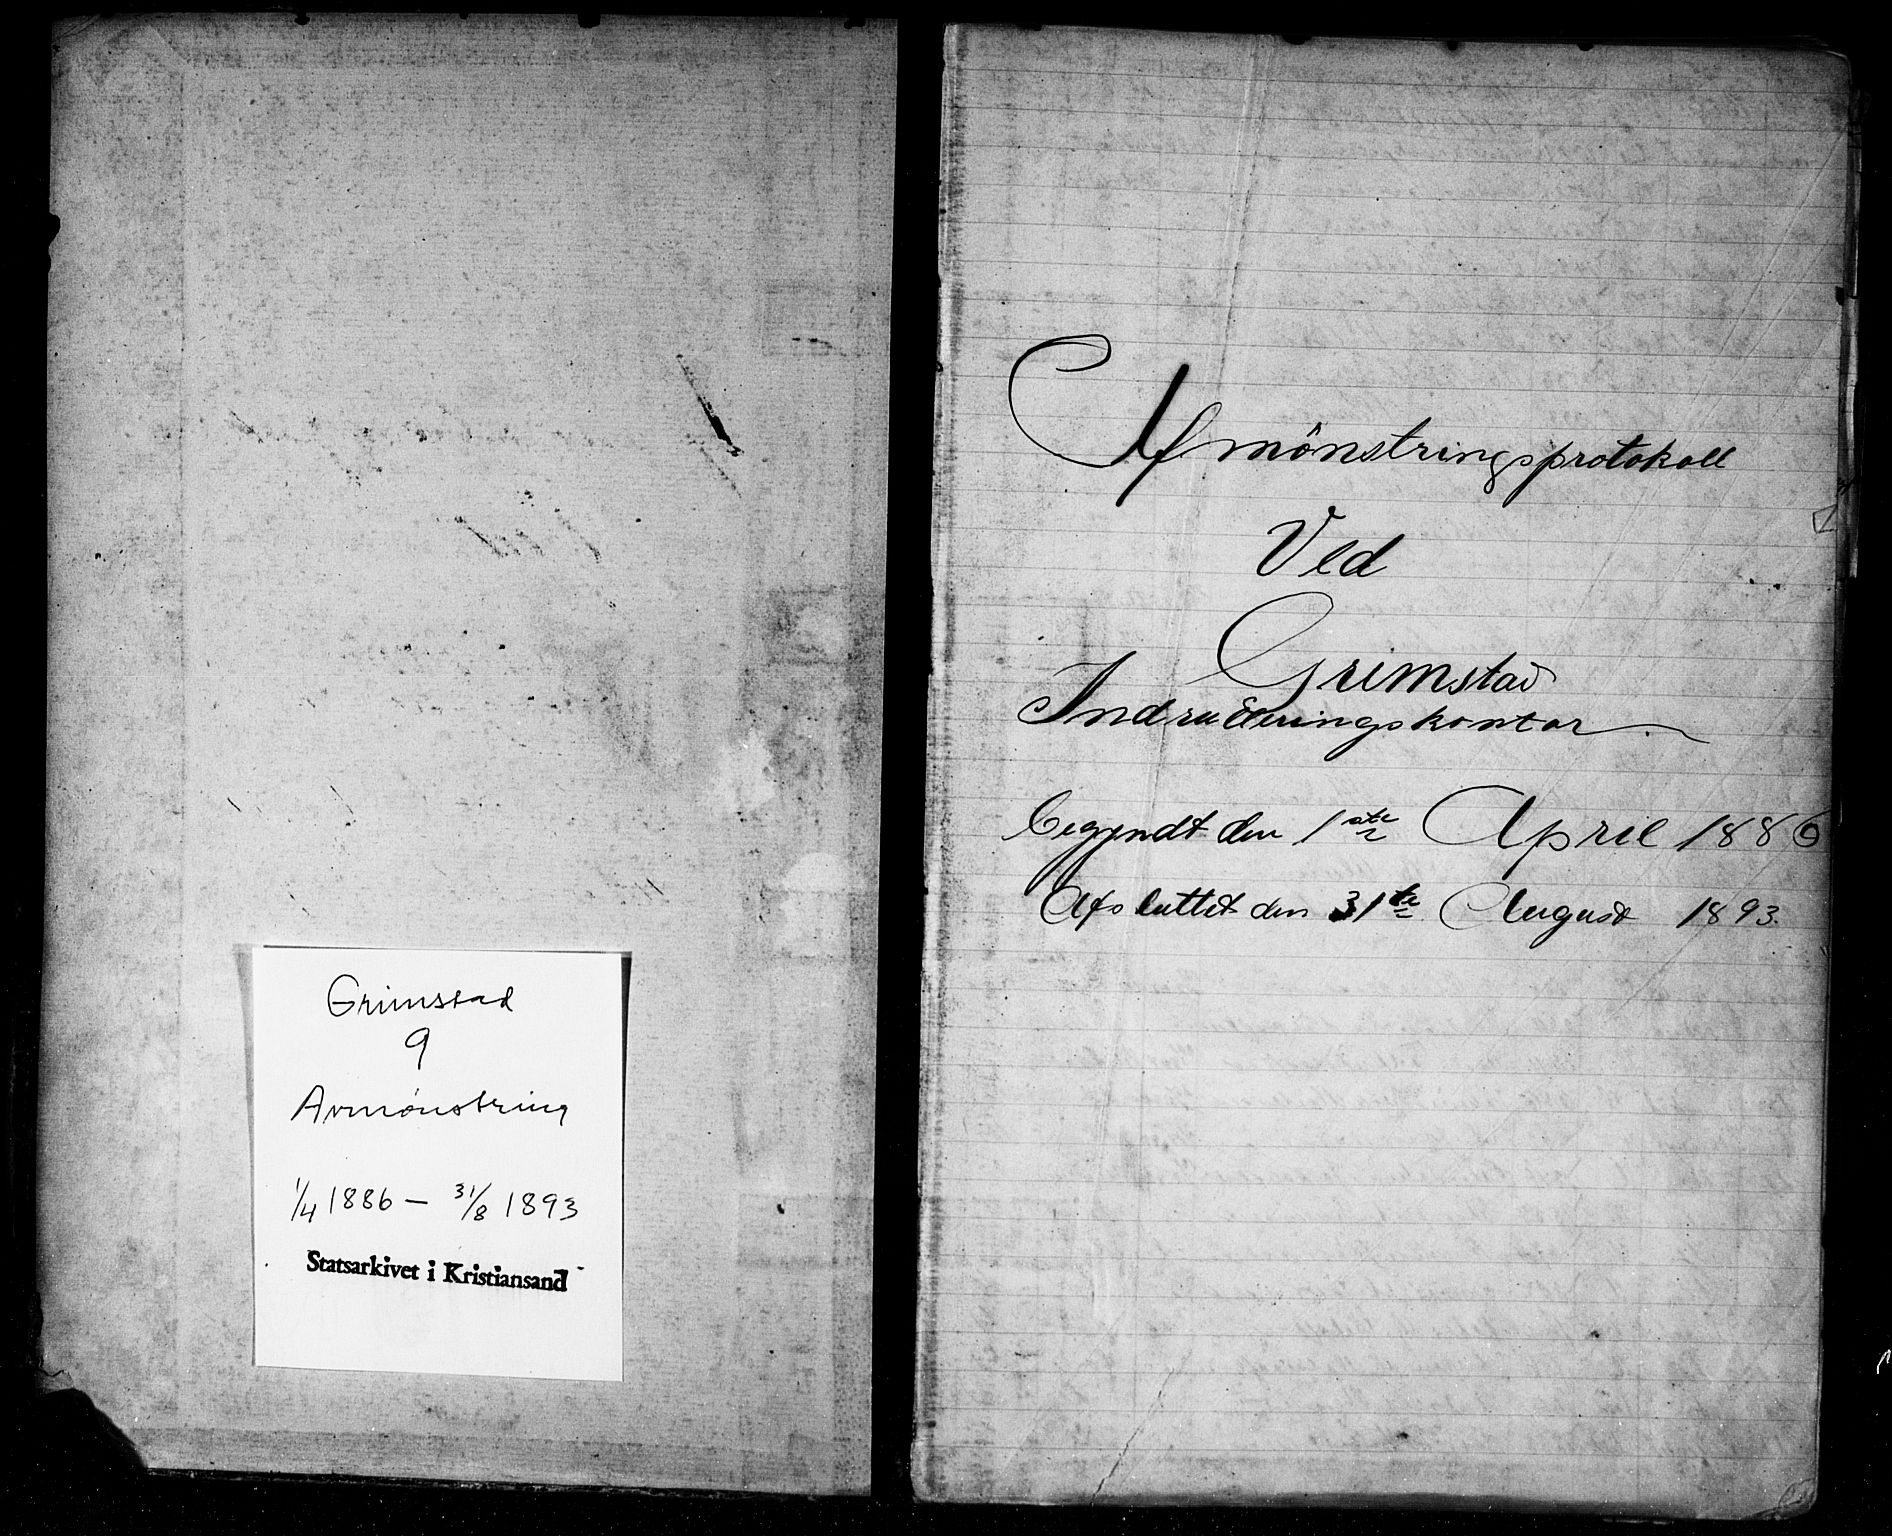 Grimstad
9
Avmønstring
1/4 1886 – 31/8 1893
Statsarkivet i Kristiansand
Afmönstringsprotokoll
Ved
Grimstad
Indrulleringskontor
begyndt den 1ste April 1886
Afsluttet den 31te August 1893.